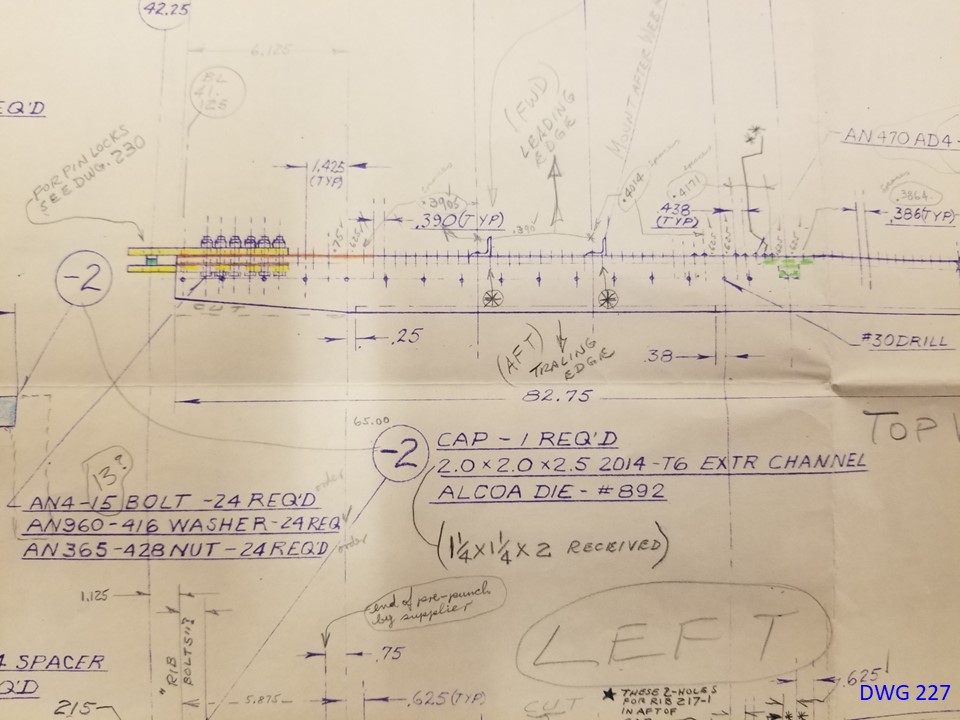 42.25
6.125
BL
41.
125
EQ'D
FOR PIN LOCKS
SEE DWG. 230
1.425
(TYP)
(FWD)
LEADING
EDGE
MOUNT AFTER
AN 470 AD4-
.3905
.390 (TYP)
.390
.4014
.4171
.438
(TYP)
.3864
.386 (TYP)
.75
.625
-2
CUT
.25
(AFT)
TRALING
EDGE
.38
#30 DRILL
82.75
TOP
65.00
-2
CAP - 1 REQ'D
2.0 x 2.0 x 2.5 2014-T6 EXTR CHANNEL
ALCOA DIE - #892
13?
order
AN4-15 BOLT -24 REQ'D
AN960-416 WASHER-24 REQ
AN365-428 NUT -24 REQ'D
order
(1 1/4 x 1 1/4 x 2 RECEIVED)
1.125
end of pre-punch
by supplier
"RIB
BOLTS"?
.75
LEFT
SPACER
Q'D
5.875
.625 (TYP)
215
CUT
★ THESE 2-HOLES
FOR RIB 217-1
IN AFT OF
.625
DWG 227